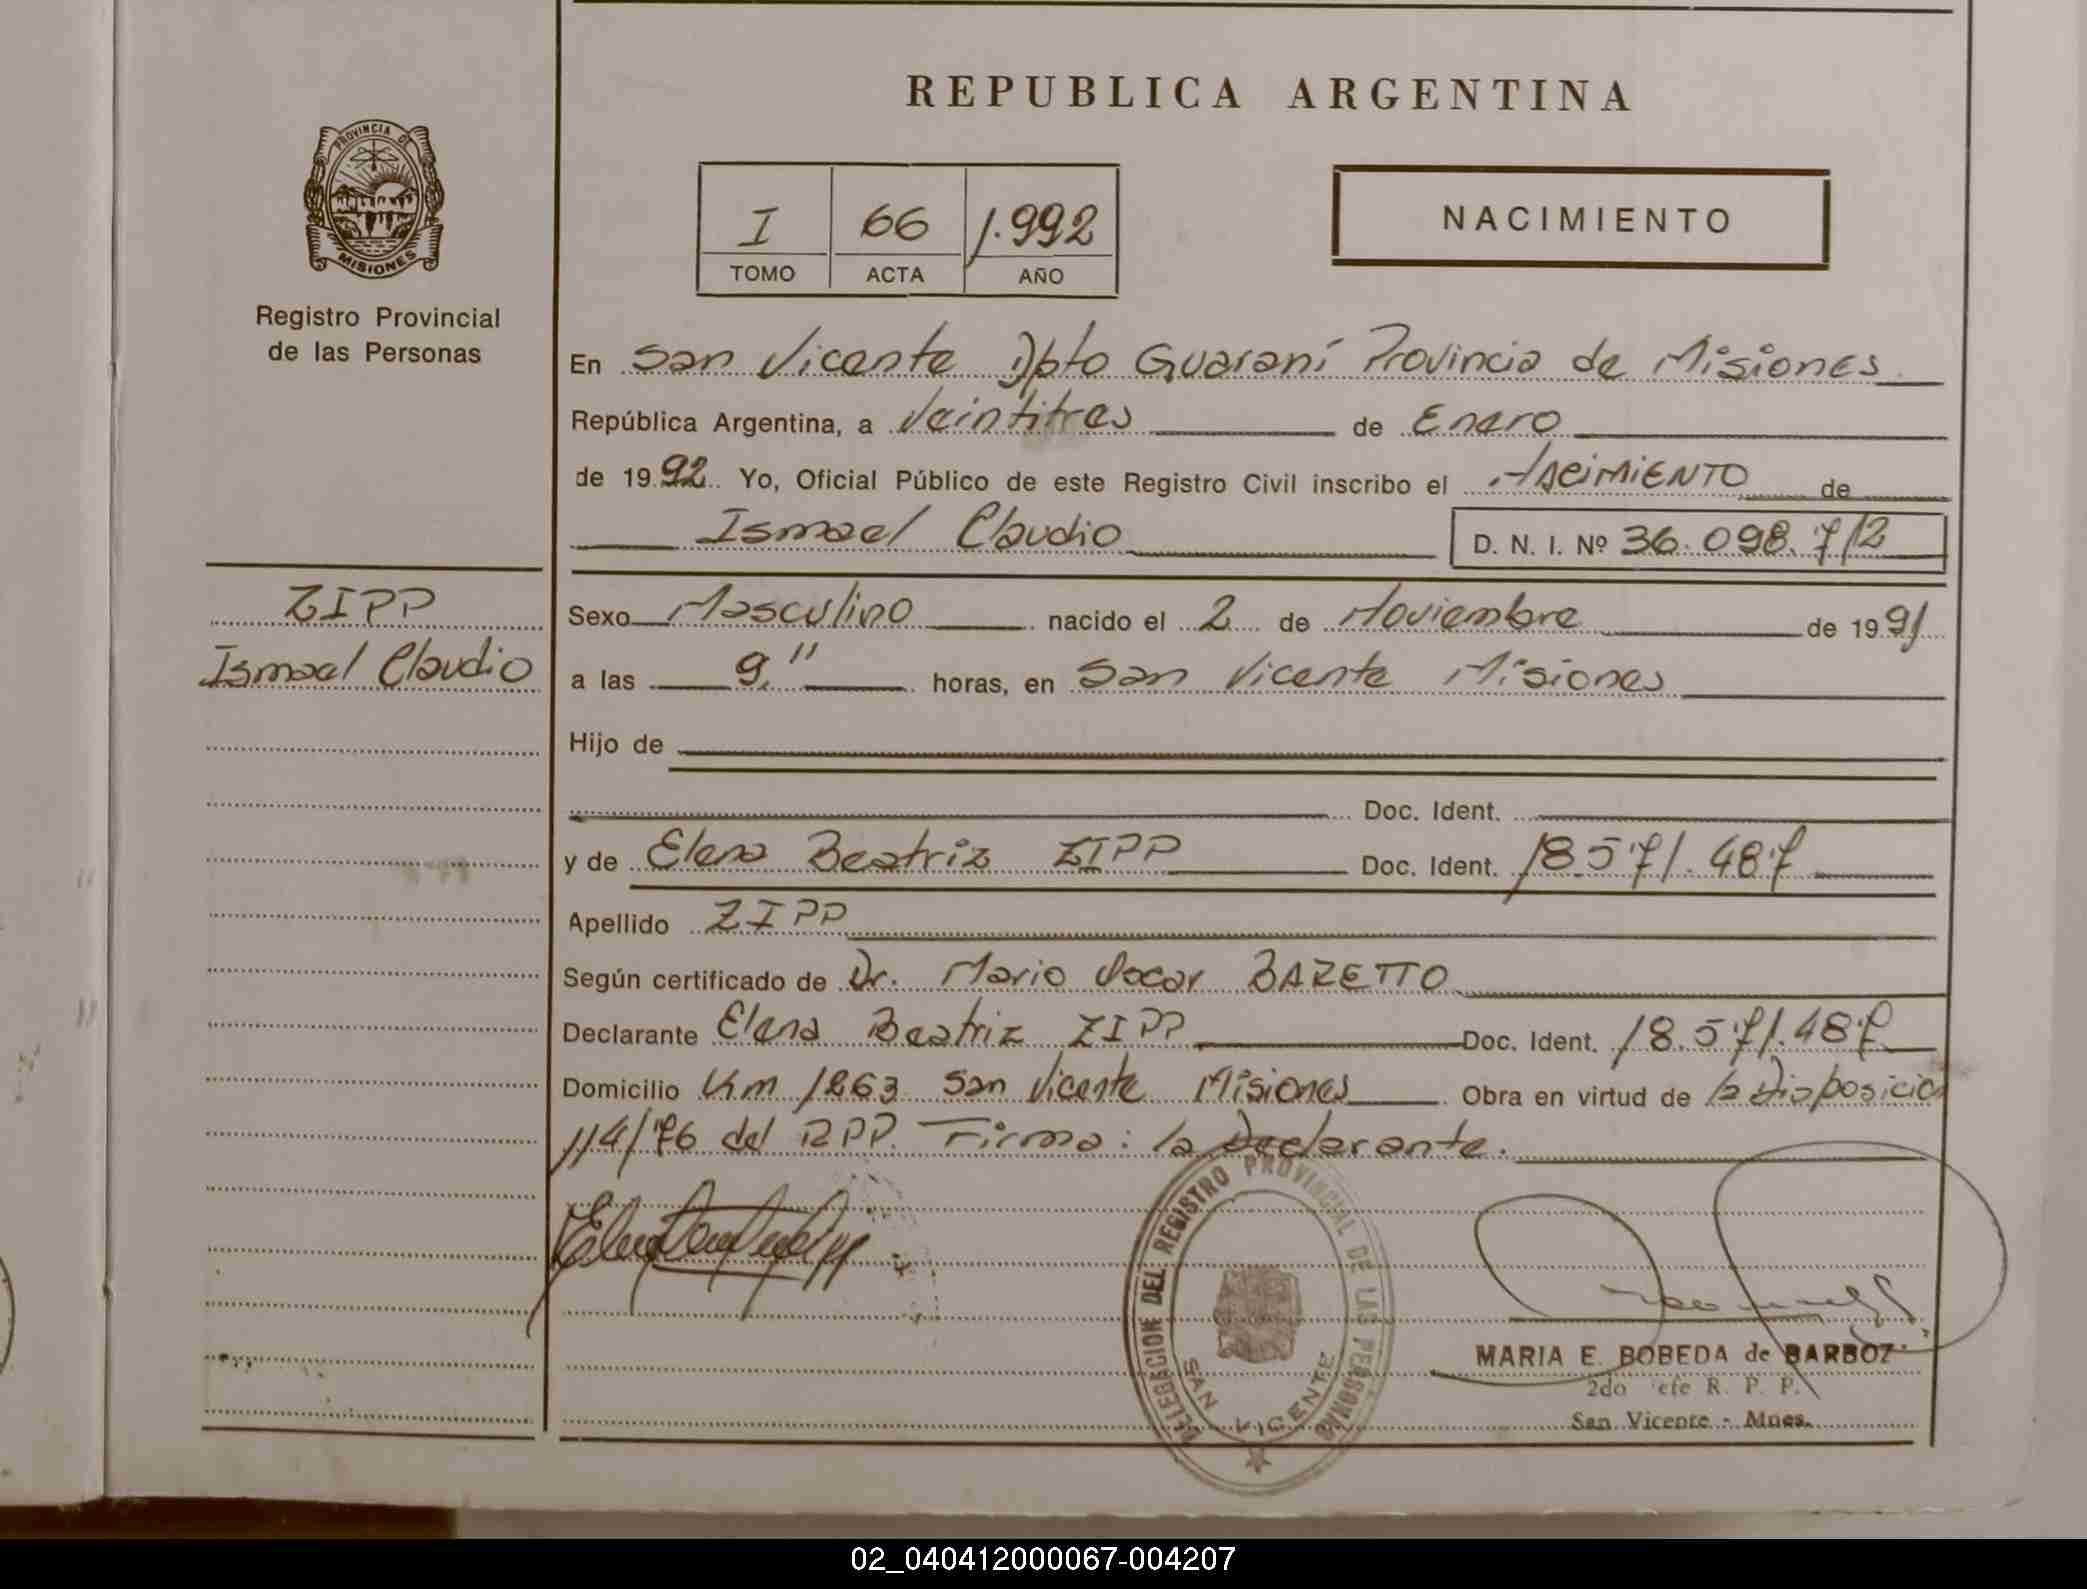 REPUBLICA ARGENTINA
PROVINCIA DE
MISIONES
Registro Provincial
de las Personas
I 66 1.992
TOMO ACTA AÑO
NACIMIENTO
En San Vicente Dpto Guaraní Provincia de Misiones
República Argentina, a Veintitres de Enero
de 1992 Yo, Oficial Público de este Registro Civil inscribo el NACIMIENTO de
Ismael Claudio D. N. I. Nº 36.098.712
ZIPP
Ismael Claudio
Sexo Masculino nacido el 2 de Noviembre de 1991
a las 9," horas, en San Vicente Misiones
Hijo de
Doc. Ident.
y de Elena Beatriz ZIPP Doc. Ident. 18.571.487
Apellido ZIPP
Según certificado de Dr. Mario Oscar BAZETTO
Declarante Elena Beatriz ZIPP Doc. Ident. 18.571.487
Domicilio Km 1263 San Vicente Misiones Obra en virtud de la Disposición
114/76 del RPP. Firma: la Declarante.
DELEGACION DEL REGISTRO PROVINCIAL DE LAS PERSONAS
SAN VICENTE
MARIA E. BOBEDA de BARBOZ
2do efe R. P. P.
San Vicente - Mnes.
02_040412000067-004207